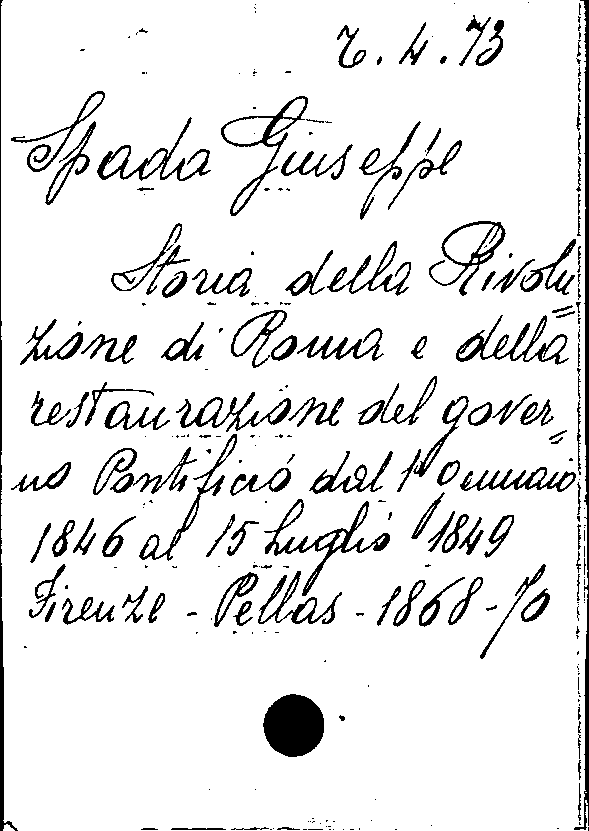 7.4.73
Spada Giuseppe
Storia della Rivolu=
zione di Roma e della
restaurazione del gover=
no Pontificio dal 1° Gennaio
1846 al 15 Luglio 1849
Firenze - Pellas - 1868-70